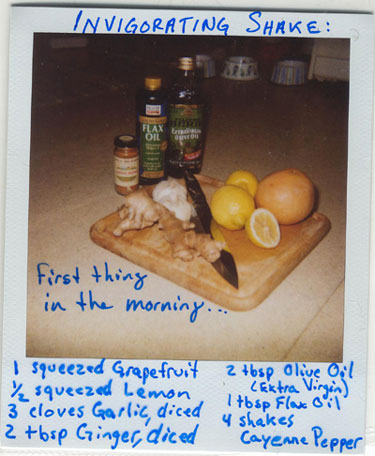 INVIGORATING SHAKE:
FLAX
OIL
First thing
in the morning...
1 squeezed Grapefruit
1/2 squeezed Lemon
3 cloves Garlic, diced
2 tbsp Ginger, diced
2 tbsp Olive Oil
(Extra Virgin)
1 tbsp Flax Oil
4 shakes
Cayenne Pepper